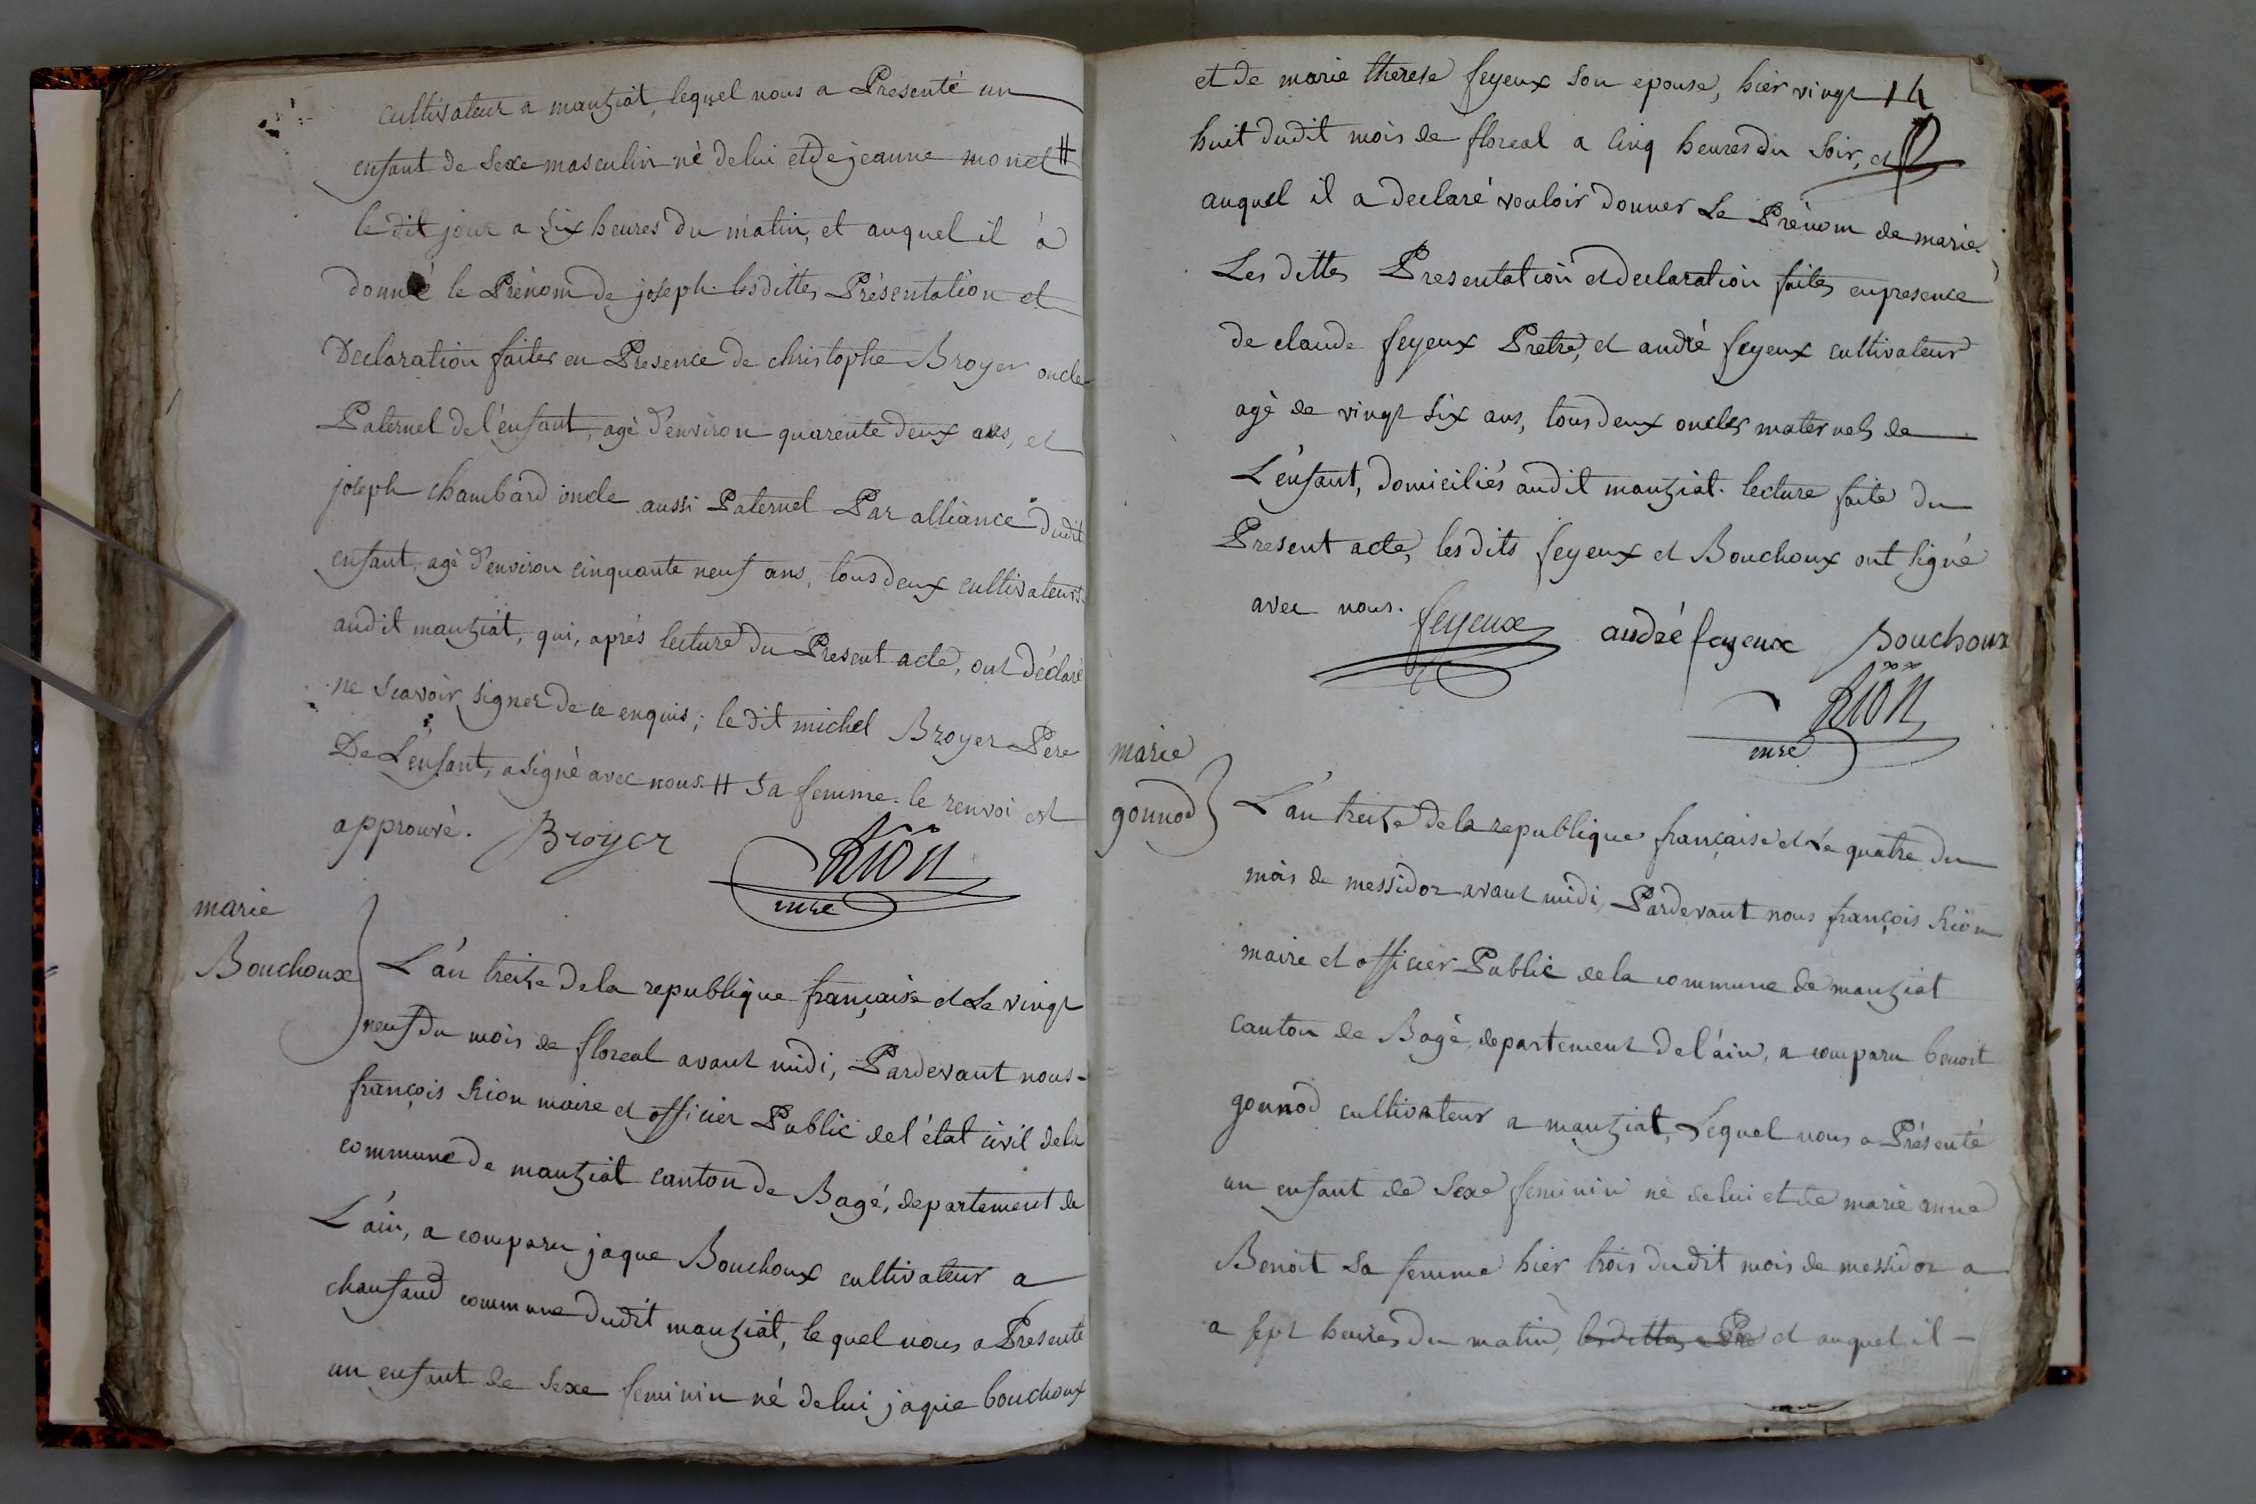 cultivateur a manziat, lequel nous a Presenté un
enfant de Sexe masculin né de lui et de jeanne monet #
le dit jour a six heures du matin, et auquel il à
donné le Prénom de joseph. lesdittes Présentation et
Declaration faites en Presence de christophe Broyer oncle
Paternel de l'énfant, agé d'environ quarente deux ans, et
joseph chambard oncle aussi Paternel Par alliance dudit
enfant, agé d'environ cinquante neuf ans, tous deux cultivateurs
audit manziat, qui, aprés lecture du Present acte, ont déclaré
ne scavoir signer de ce enquis; le dit michel Broyer Pere
De L'énfant, a signé avec nous. # sa femme. le renvoi est
approuvé. Broyer
Rion
mre
marie
Bouchoux
L'án treize de la republique française et Le vingt
neuf du mois de floreal avant midi, Pardevant nous
françois Rion maire et officier Public de l'état civil de la
commune de manziat canton de Bagé, departement de
L'áin, a comparu jaque Bouchoux cultivateur a
chanfand commune dudit manziat, le quel nous a Presenté
un enfant de sexe feminin né de lui jaque bouchoux
14
et de marie therese feyeux son epouse, hier vingt
huit dudit mois de floreal a cinq heures du soir, et
auquel il a declaré vouloir donner Le Prénom de marie.
Les dittes Presentation et declaration faites en presence
de claude feyeux Pretre, et andré feyeux cultivateur
agé de vingt six ans, tous deux oncles maternels de
L'énfant, domiciliés audit manziat. lecture faite du
Present acte, les dits feyeux et Bouchoux ont signé
avec nous. feyeux andré feyeux Bouchoux
Rion
mre
marie
gonnod
L'án treize de la republique française et Le quatre du
mois de messidor avant midi, Pardevant nous françois Rion
maire et officier Public de la commune de manziat
canton de Bagé, departement de l'áin, a comparu benoit
gonnod cultivateur a manziat, Lequel nous a Présenté
un enfant de Sexe feminin né de lui et de marie anne
Benoit sa femme hier trois dudit mois de messidor a
a sept heures du matin, lesdittes Pre et auquel il